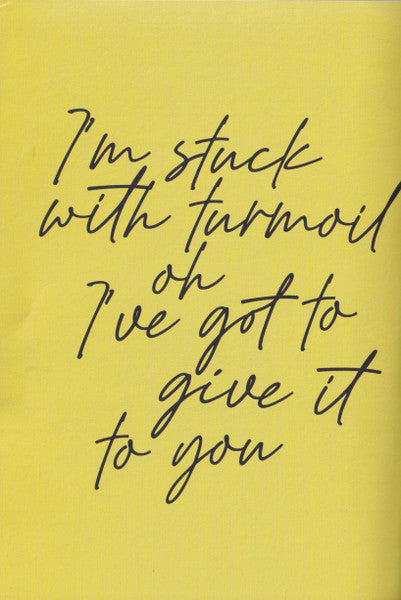 I'm stuck
with turmoil
oh
I've got to
give it
to you